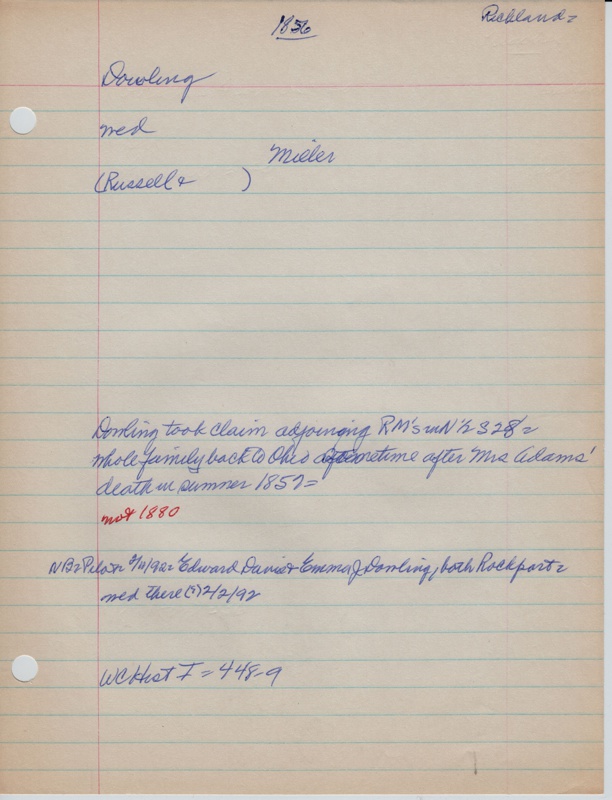 Richland=
1856
Dowling
med
Miller
(Russell & )
Dowling took claim adjoining RM's in N 1/2 S 28=
whole family back to Ohio sometime after Mrs Adams'
death in summer 1857=
not 1880
NB= Pilot= 2/11/92= Edward Davis & Emma J Dowling, both Rockport=
med there (?) 2/2/92
WC Hist I = 448-9